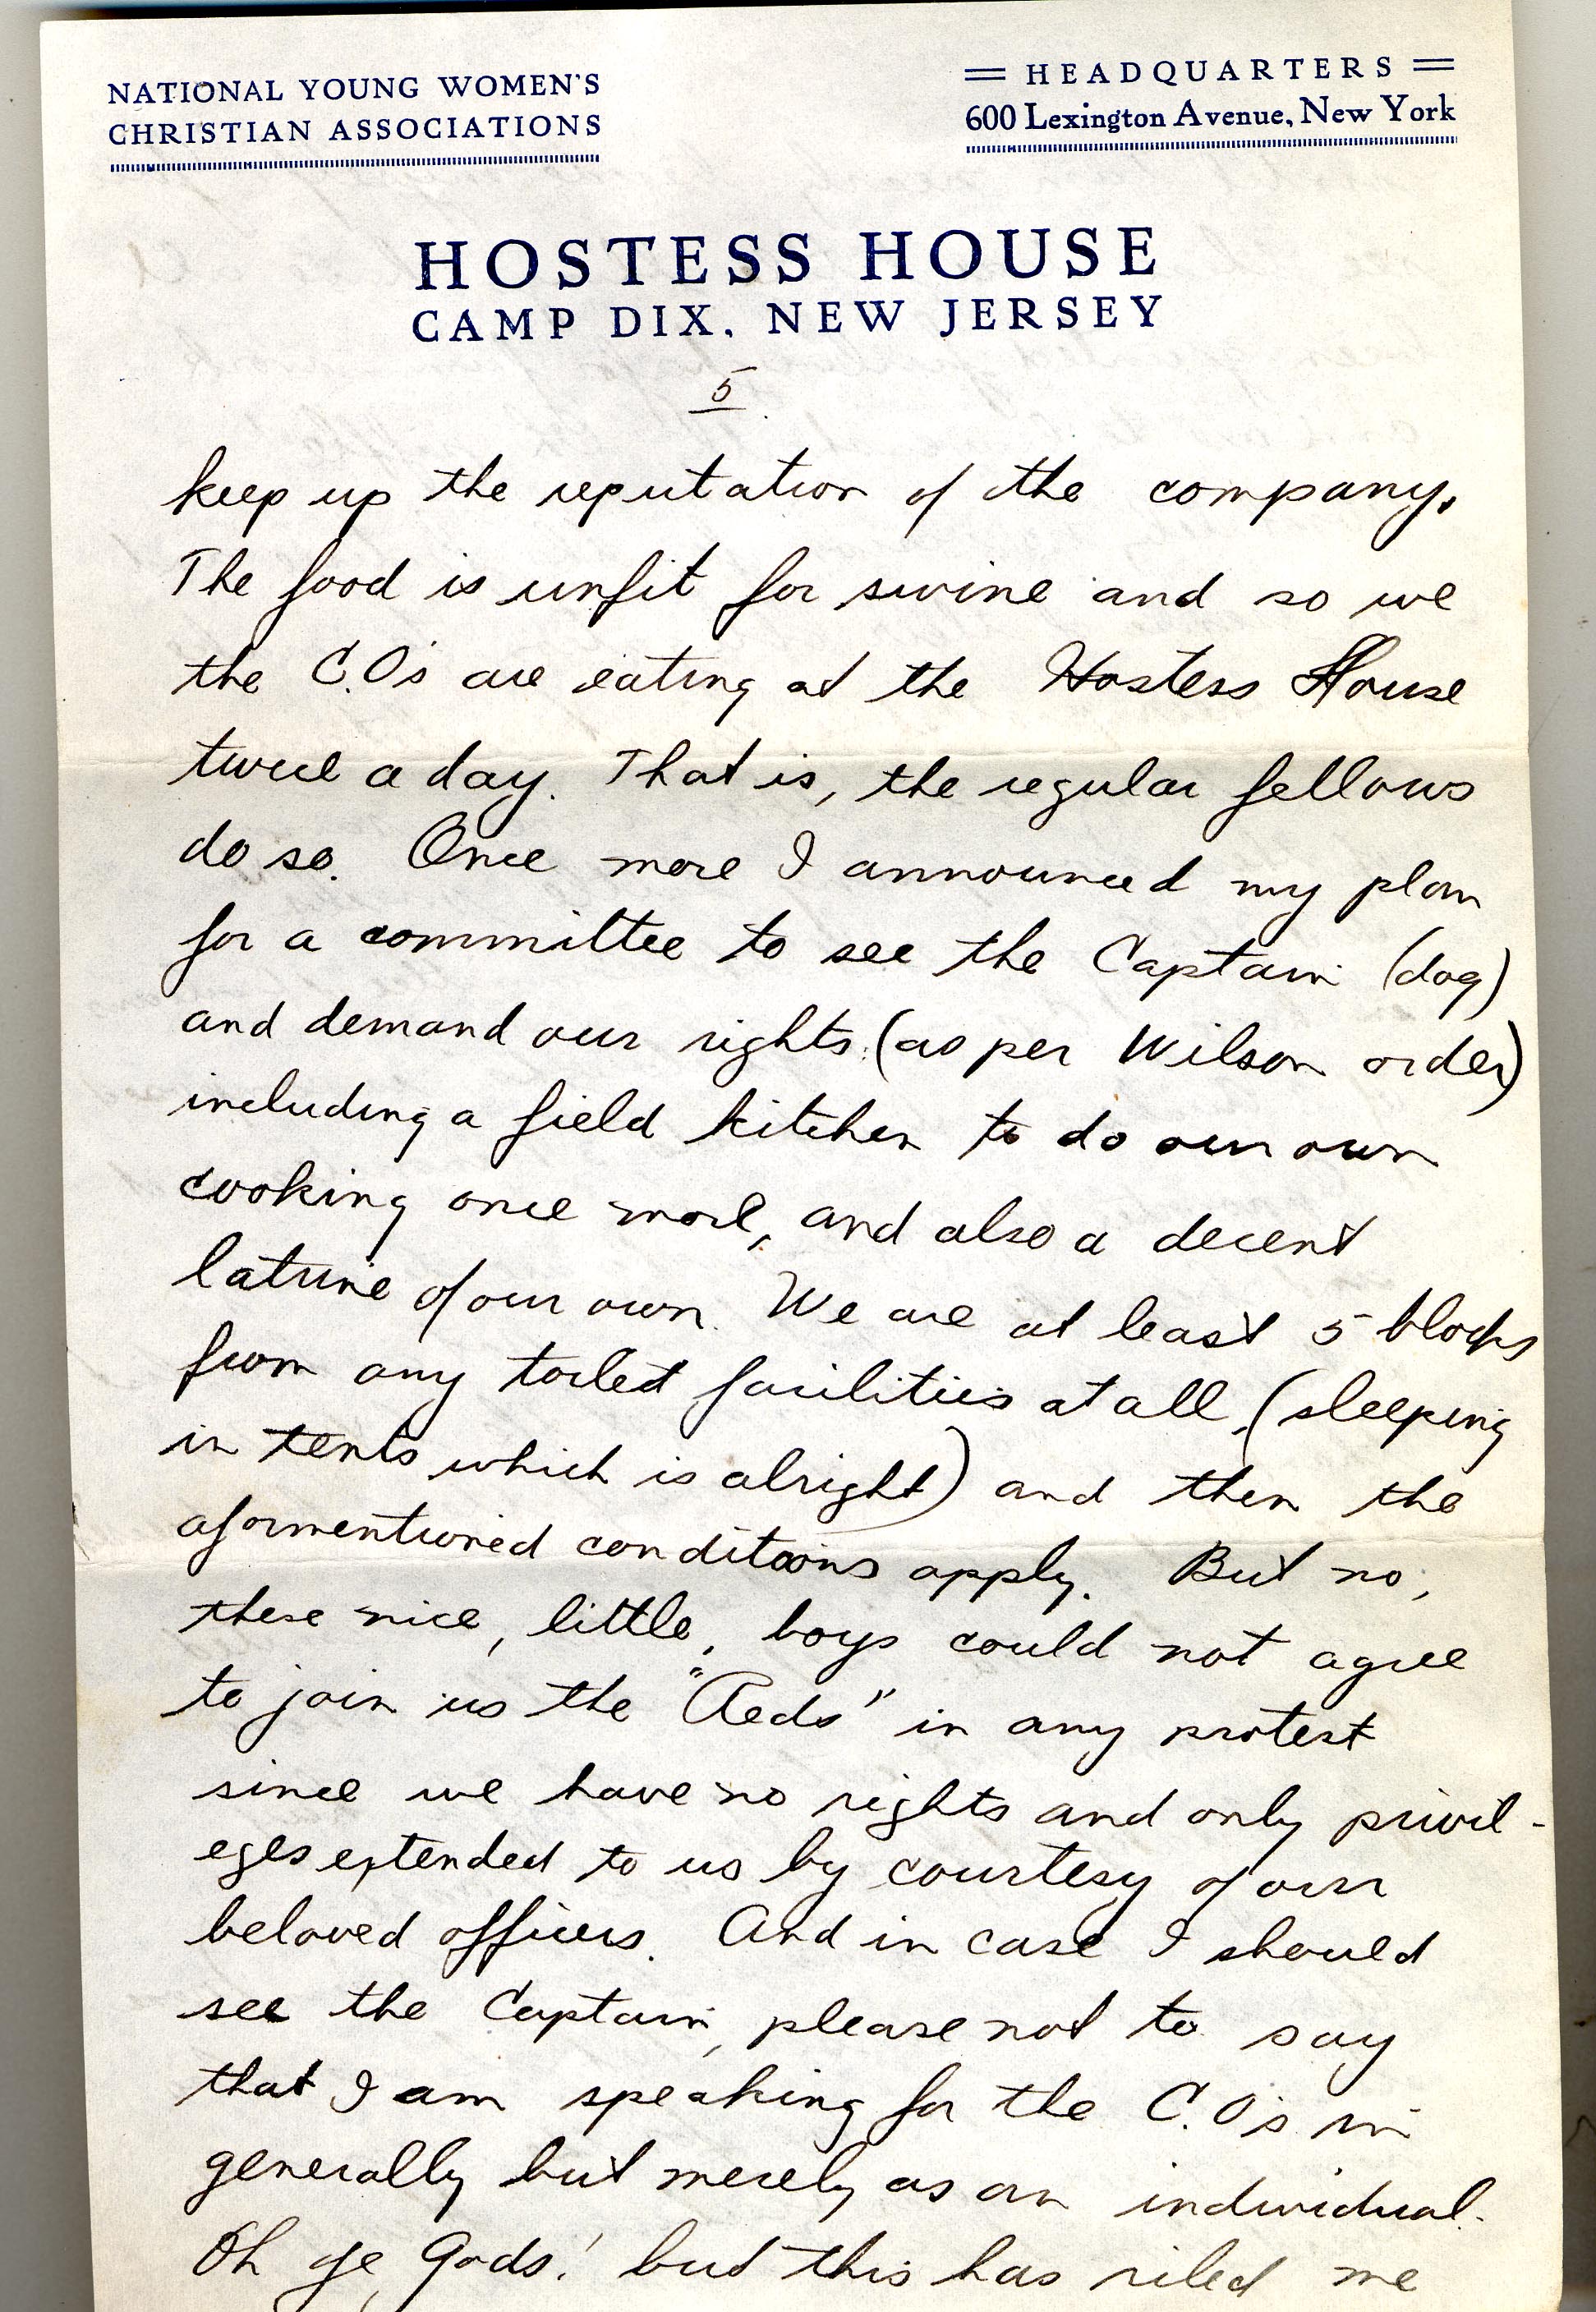 NATIONAL YOUNG WOMEN'S
CHRISTIAN ASSOCIATIONS
HEADQUARTERS
600 Lexington Avenue, New York
HOSTESS HOUSE
CAMP DIX, NEW JERSEY
5
keep up the reputation of the company.
The food is unfit for swine and so we
the C.O's are eating at the Hostess House
twice a day. That is, the regular fellows
do so. Once more I announced my plan
for a committee to see the Captain (dog)
and demand our rights (as per Wilson order)
including a field kitchen to do our own
cooking once more, and also a decent
latrine of our own. We are at least 5 blocks
from any toilet facilities at all, (sleeping
in tents which is alright) and then the
aformentioned conditions apply. But no,
these nice, little, boys could not agree
to join us the "Reds" in any protest
since we have no rights and only privil-
eges extended to us by courtesy of our
beloved officers. And in case I should
see the Captain, please not to say
that I am speaking for the C.O's in
generally but merely as an individual.
Oh ye Gods! but this has riled me